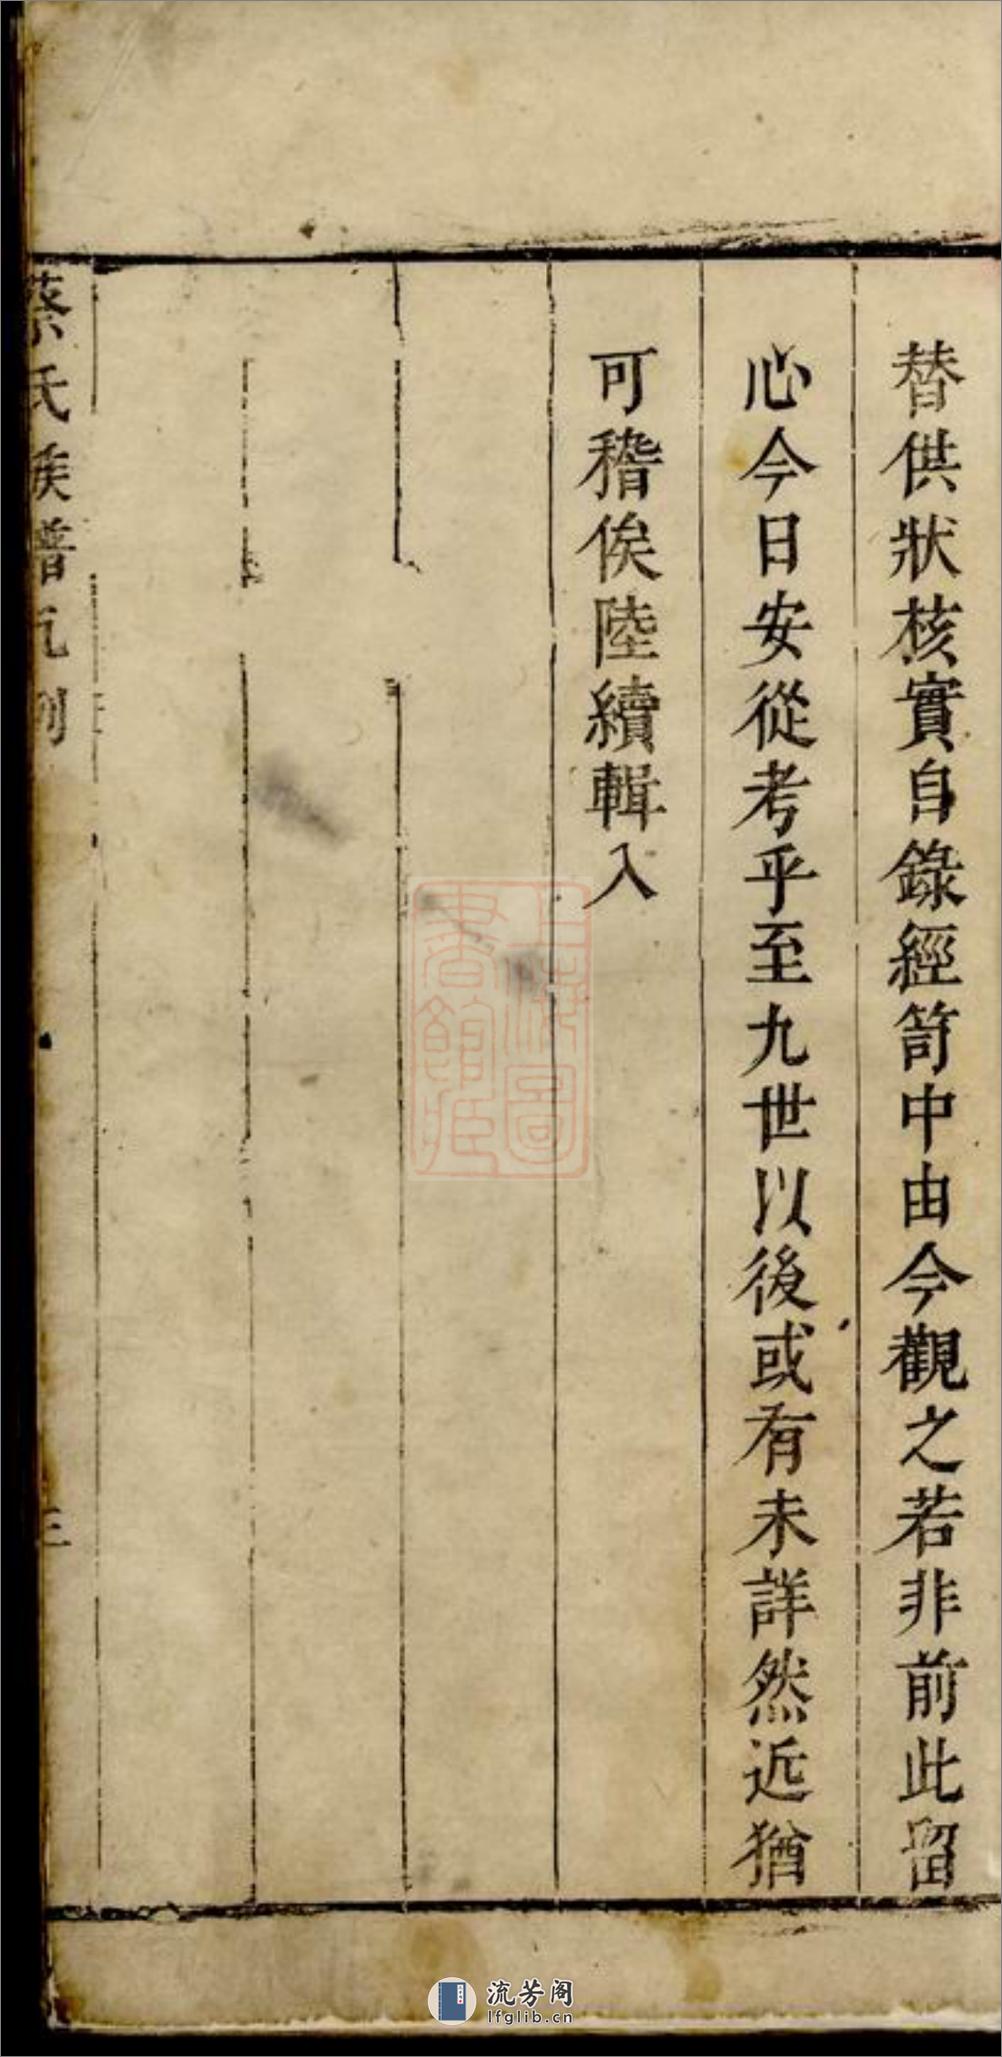 替供狀核實自錄經笥中由今觀之若非前此留
心今日安從考乎至九世以後或有未詳然近猶
可稽俟陸續輯入
蔡氏族譜凡例
三
上海圖書館藏
流芳阁
lfglib.cn